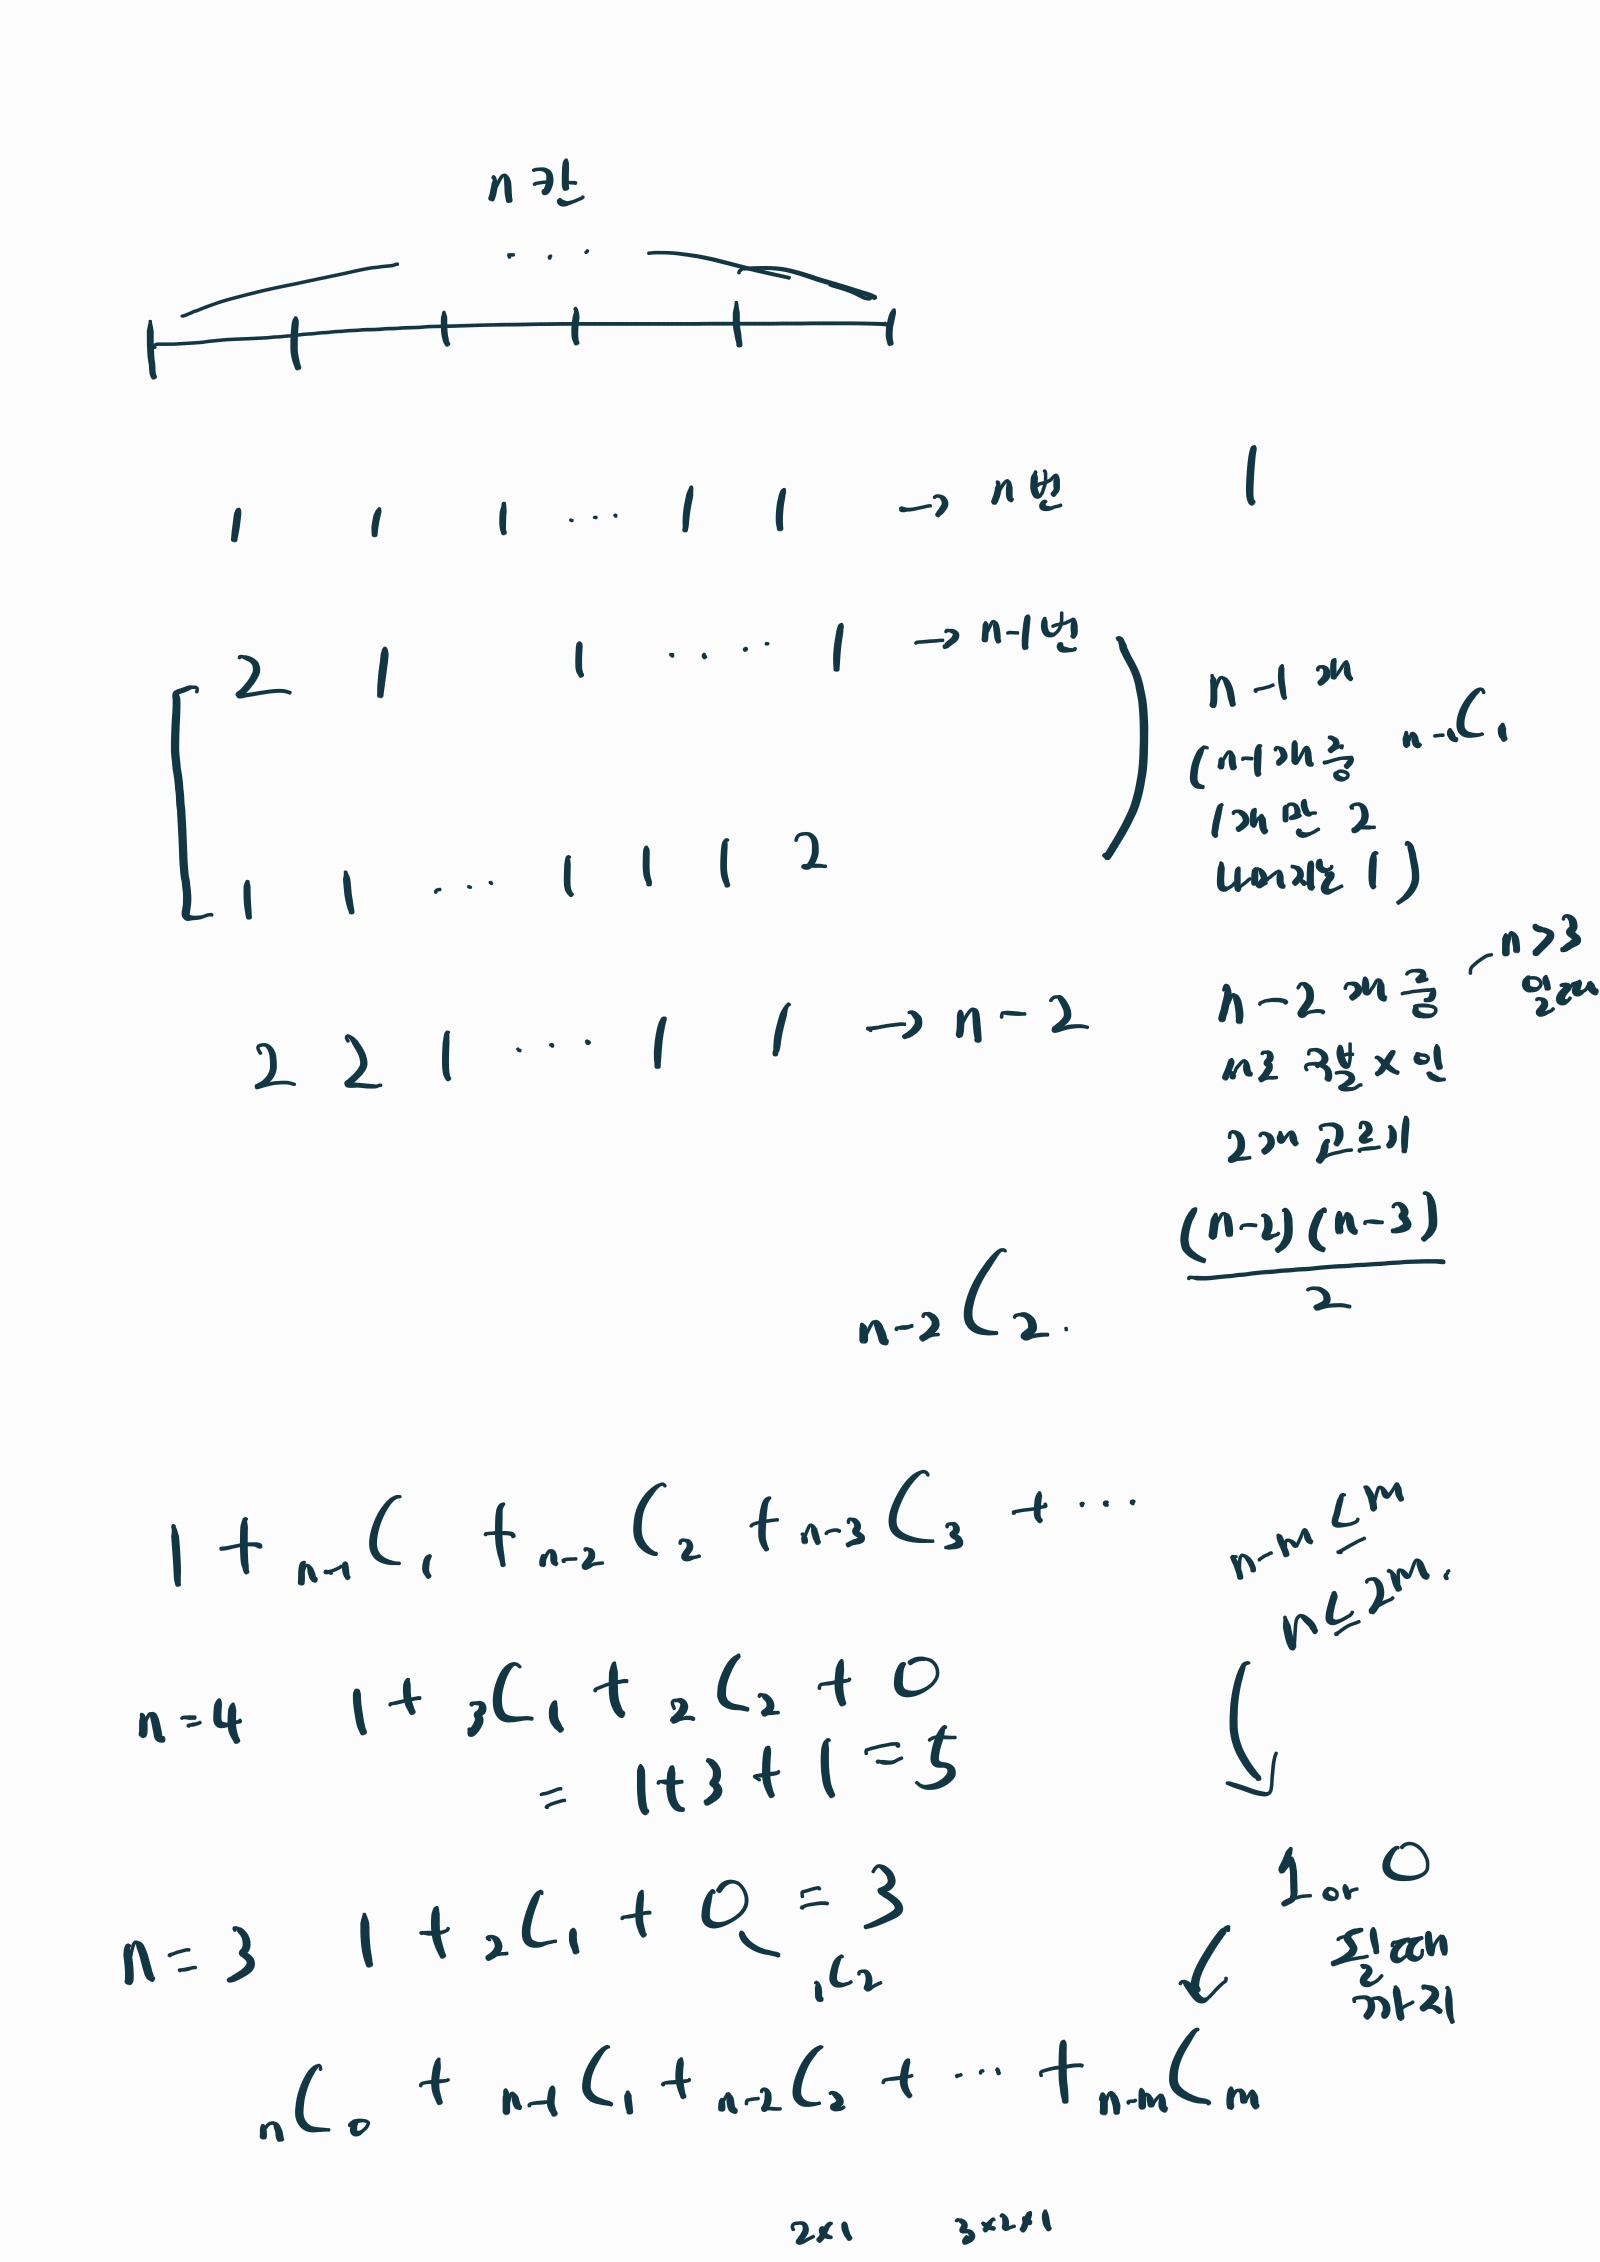 n 칸
...
1 1 1 ... 1 1 → n번 1
2 1 1 .... 1 → n-1번
n-1개
(n-1개 중 n-1C1
1개만 2
나머지는 1)
1 1 ... 1 1 1 2
2 2 1 ... 1 1 → n-2
n-2개 중 n>3
일때
순서 구분 x 인
2개 고르기
(n-2)(n-3)
2
n-2C2.
1 + n-1C1 + n-2C2 + n-3C3 + ...
n-m ≤ m
n ≤ 2m.
n=4 1 + 3C1 + 2C2 + 0
= 1+3+1 = 5
n=3 1 + 2C1 + 0 = 3
1C2
1 or 0
될 때
까지
nC0 + n-1C1 + n-2C2 + ... + n-mCm
2×1 3×2×1